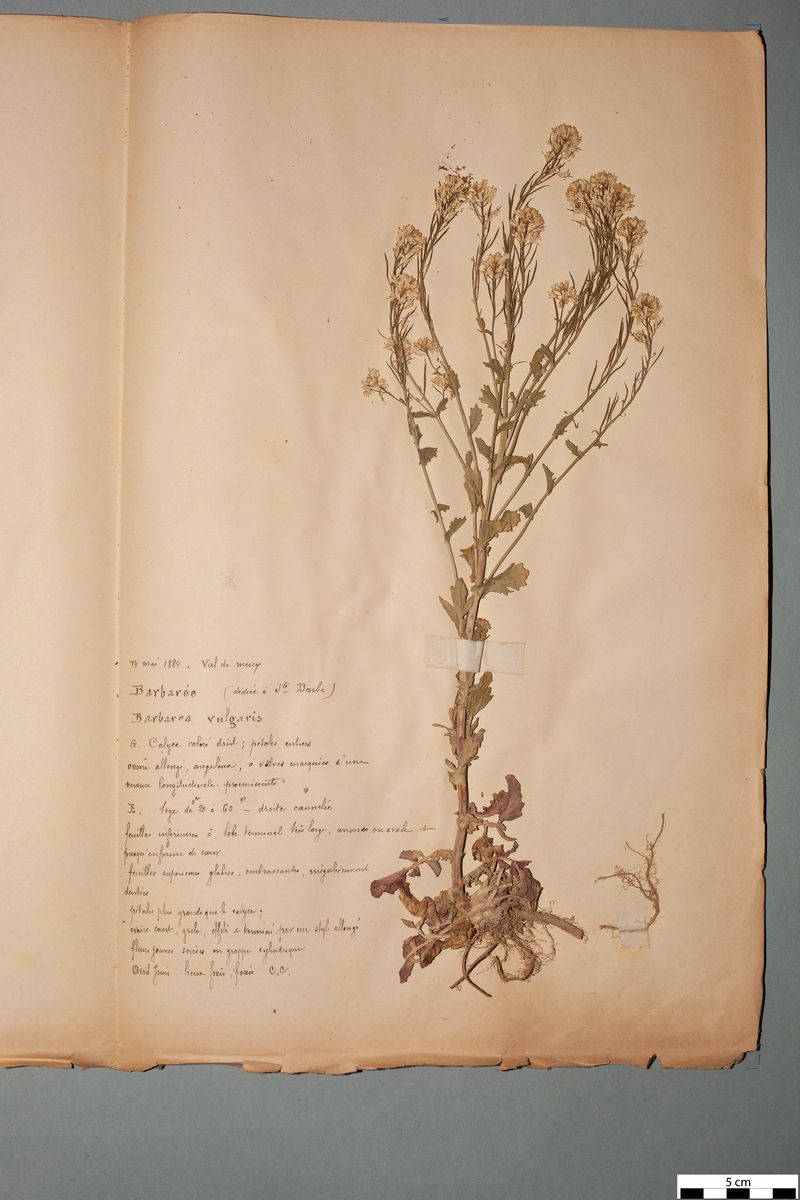 14 mai 1884. Val de mercy
Barbarée (dédiée à Ste Barbe)
Barbarea vulgaris
G. Calyce coloré droit; pétales entiers
ovaire allongé, anguleux, à valves marquées d'une
nervure longitudinale proeminente
E. tige de 20 à 60 — droite cannelée
feuilles inférieures à lobe terminal très large, arrondi ou ovale et
presqu'en forme de cœur
feuilles supérieures glabres, embrassantes, irrégulièrement
dentées
pétales plus grands que le calyce;
ovaire court, grêle, effilé et terminé par un style allongé
fleurs jaunes serrées en grappe cylindrique
Avril Juin - lieux frais, fossés C.C.
5 cm